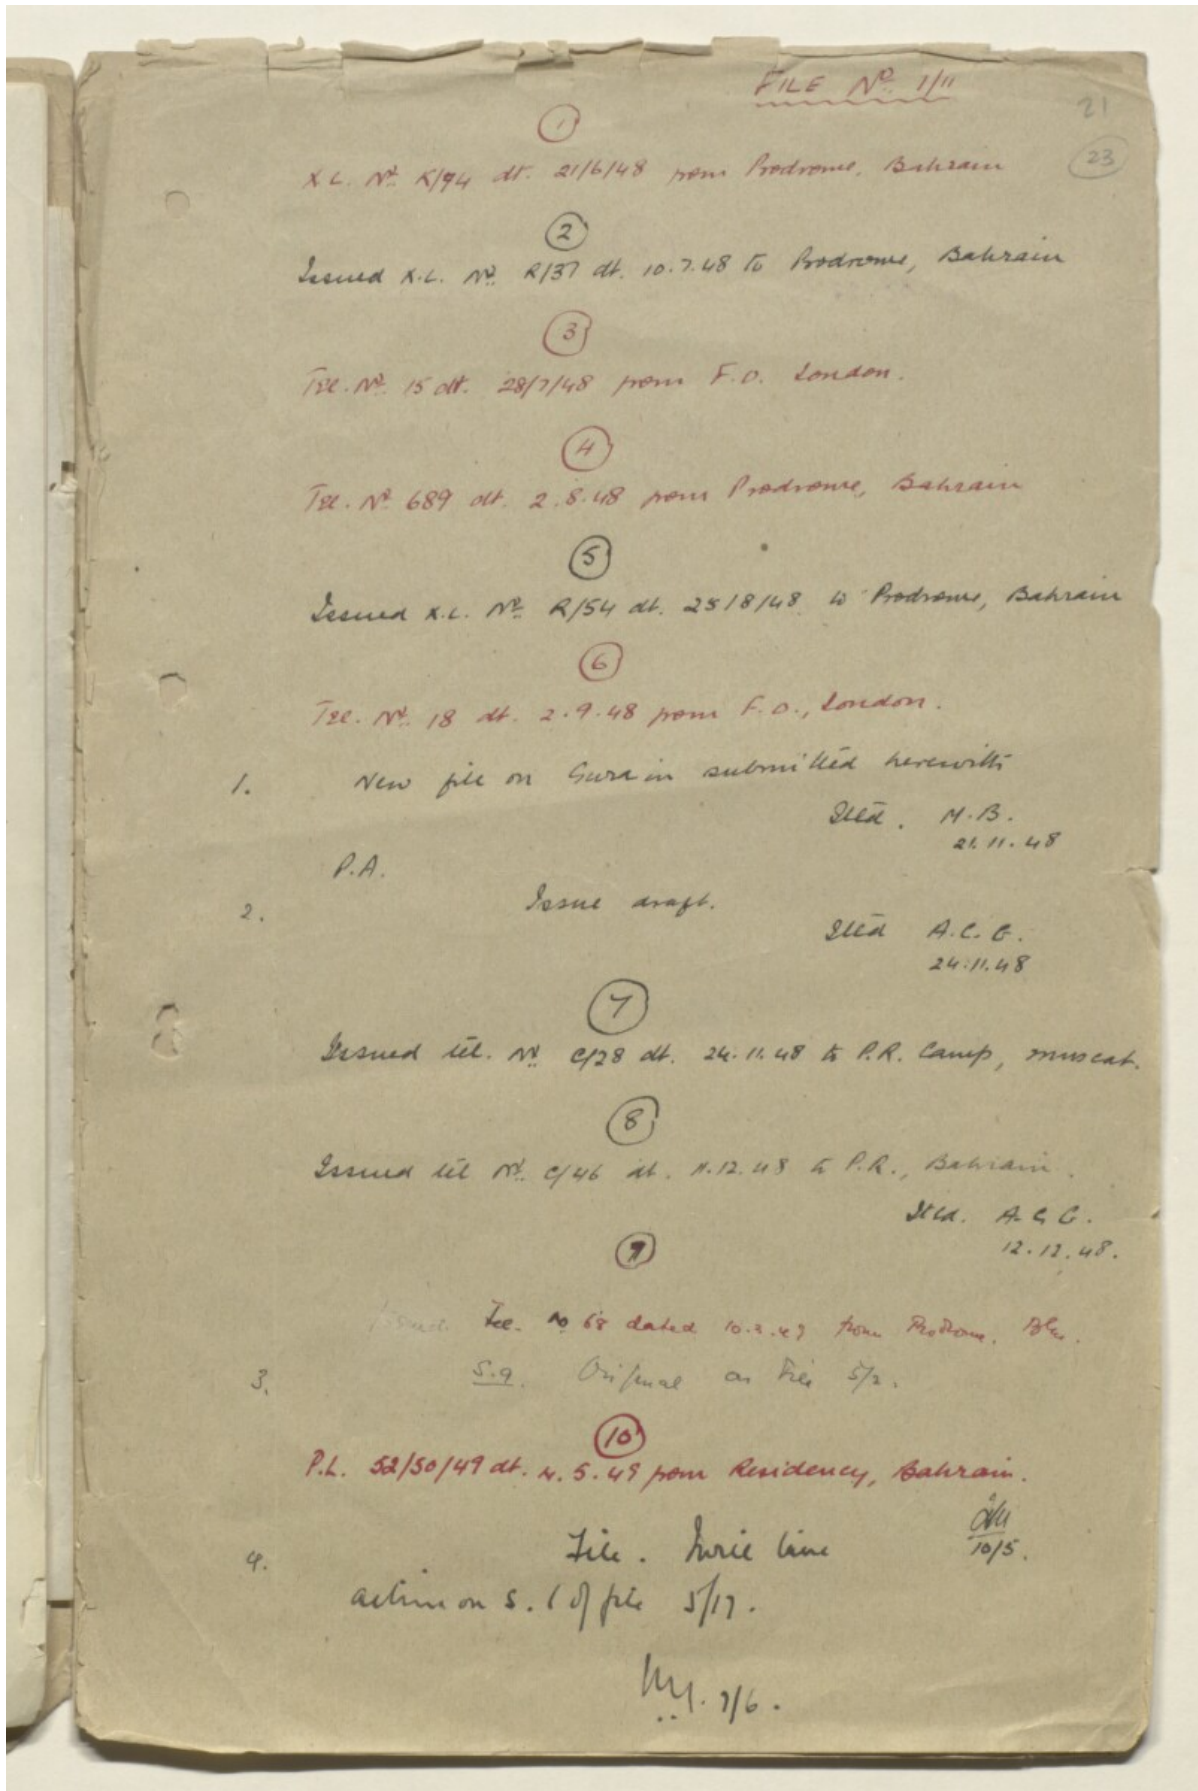 FILE Nº 1/11
21
23
1
X.L. Nº R/94 dt. 21/6/48 from Prodrome, Bahrain
2
Issued X.L. Nº R/37 dt. 10.7.48 to Prodrome, Bahrain
3
Tel. Nº 15 dt. 28/7/48 from F.O. London.
4
Tel. Nº 689 dt. 2.8.48 from Prodrome, Bahrain
5
Issued X.L. Nº R/54 dt. 25/8/48 to Prodrome, Bahrain
6
Tel. Nº 18 dt. 2.9.48 from F.O., London.
1. New file on submitted herewith
Itld. M.B.
21.11.48
P.A.
2. Issue draft.
Itld A.C.G.
24.11.48
7
Issued tel. Nº C/28 dt. 24.11.48 to P.R. Camp, Muscat.
8
Issued tel Nº C/46 dt. 11.12.48 to P.R., Bahrain.
Itld. A.C.G.
12.12.48.
9
Tel. No 68 dated 10.3.49 from Prodrome,
3. S.9. Original on File 5/2.
10
P.L. 52/50/49 dt. 4.5.49 from Residency, Bahrain.
10/5.
4. File.
action on S.1 of file 5/17.
7/6.